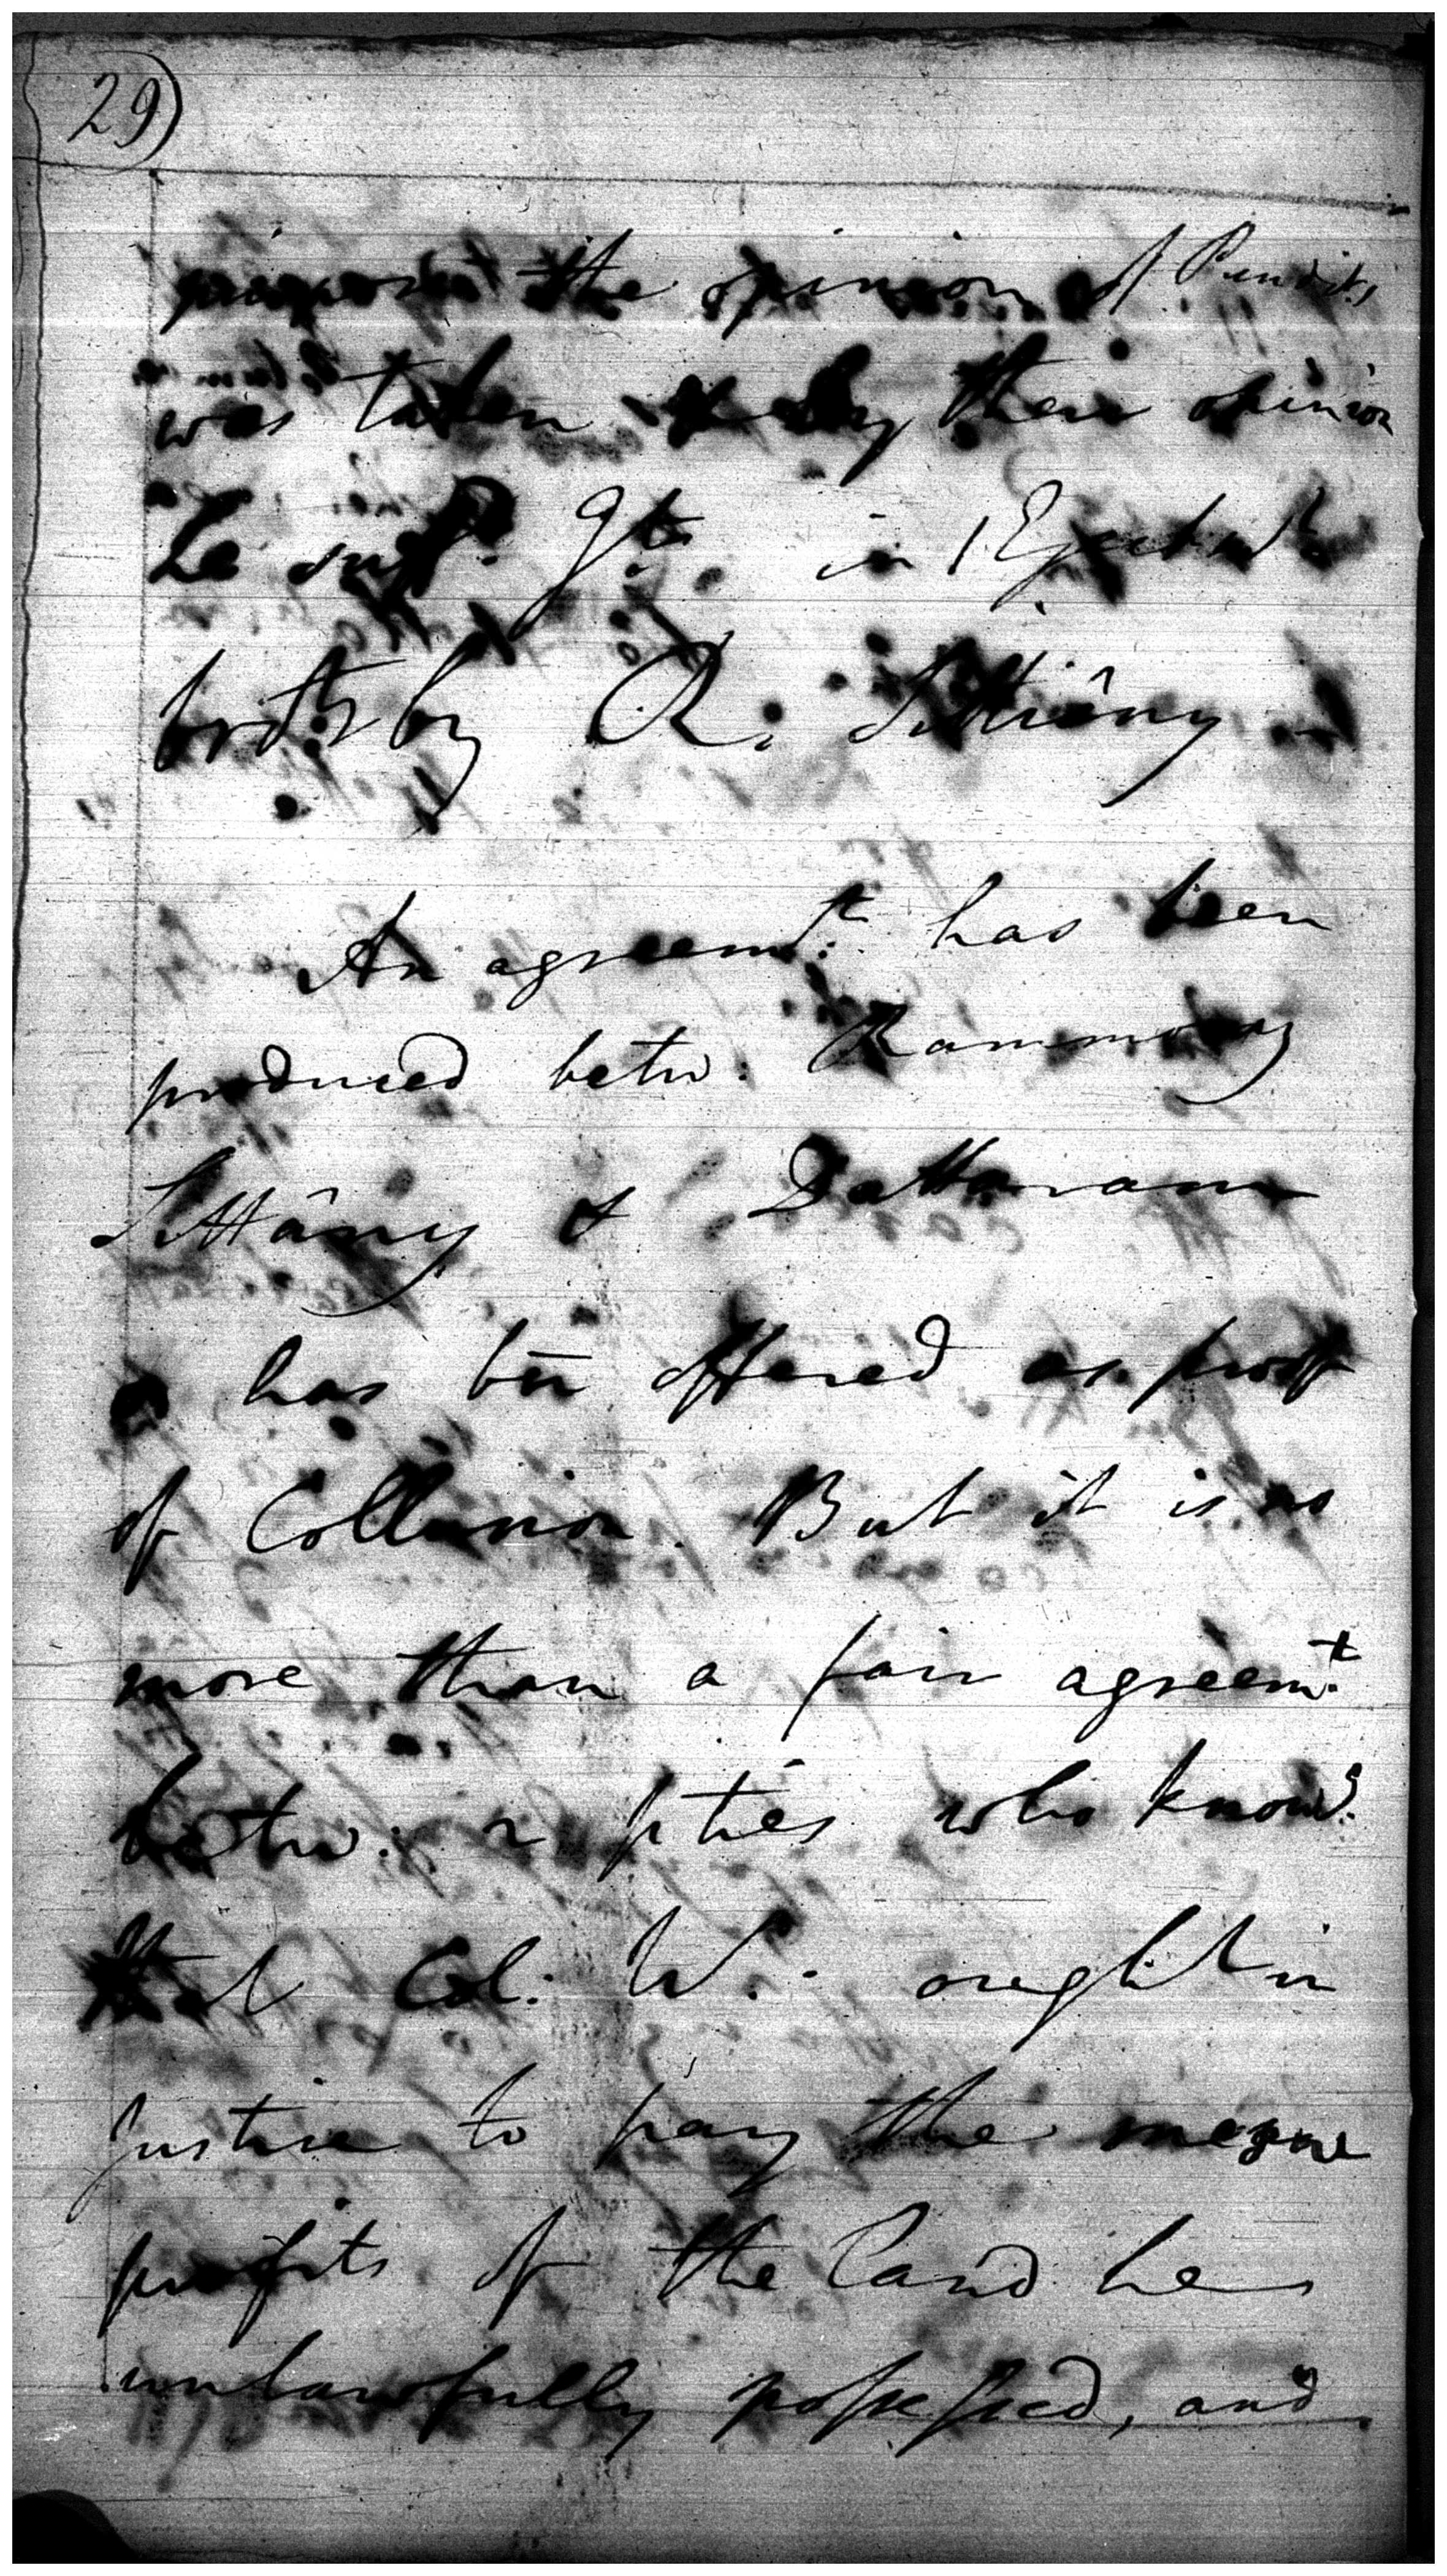 29)
the opinion of Pundits
was taken & by their opinion
in 1 Ejectmt
by R. Sittâny
An agreemt. has been
produced betw. Rammony
Sittâny & Dattaram
& has bēn offered as proof
of Collusion. But it is no
more than a fair agreemt.
betw. 2 pties who knowg.
that Col: W. ought in
justice to pay the mesne
profits of the land he
unlawfully possessed, and